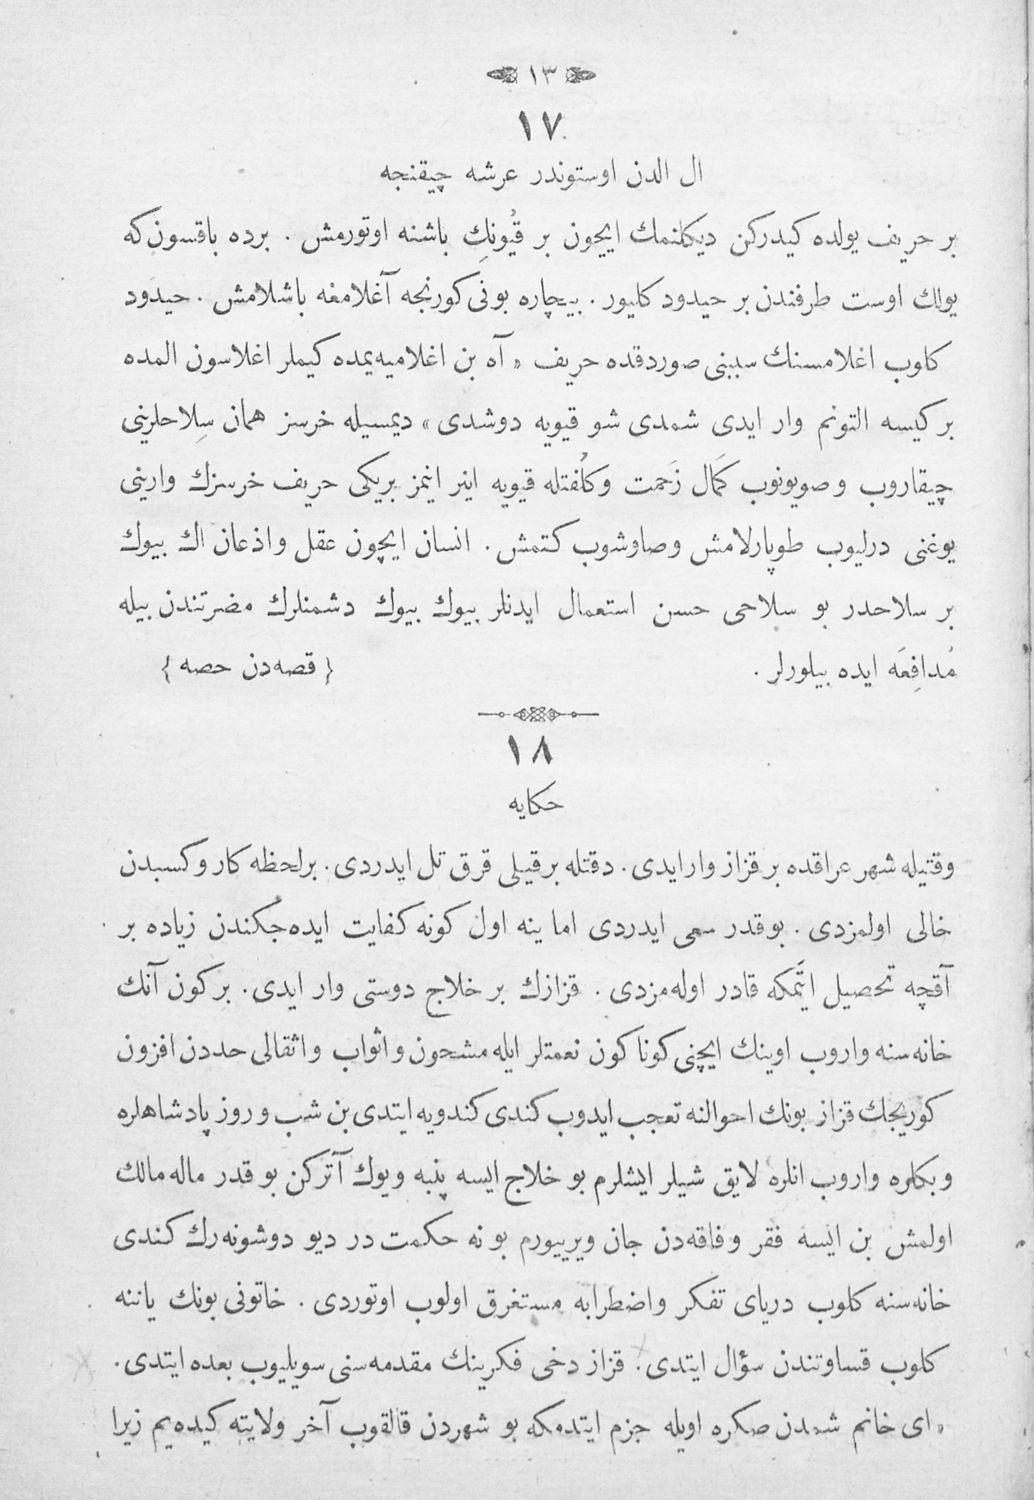 ١٣
١٧
ال الدن اوستوندر عرشه چيقنجه
بر حريف يولده كيدركن ديكلنمك ايچون بر قيُونكِ باشنه اوتورمش . برده باقسون كه
يولك اوست طرفندن بر حيدود كليور . بيچاره بونى كورنجه آغلامغه باشلامش . حيدود
كلوب اغلامسنك سببنى صوردقده حريف « آه بن اغلاميه‌يمده كيملر اغلاسون المده
بر كيسه التونم وار ايدى شمدى شو قيويه دوشدى » ديمسيله خرسز همان سِلاحلرينى
چيقاروب وصويونوب كَمال زَحمت وكُلفتله قيويه اينر اينمز بريكى حريف خرسزك وارينى
يوغنى درليوب طوپارلامش وصاوشوب كتمش . انسان ايچون عقل واذعان اك بيوك
بر سلاحدر بو سلاحى حسن استعمال ايدنلر بيوك بيوك دشمنلرك مضرتندن بيله
مُدافِعَه ايده بيلورلر . { قصه‌دن حصه }
١٨
حكايه
وقتيله شهر عراقده بر قزاز وار ايدى . دقتله بر قيلى قرق تل ايدردى . بر لحظه كار وكسبدن
خالى اولمزدى . بو قدر سعى ايدردى اما ينه اول كونه كفايت ايده‌جكندن زياده بر
آقچه تحصيل ايتَمكه قادر اوله‌مزدى . قزازك بر خلاج دوستى وار ايدى . بر كون آنك
خانه‌سنه واروب اوينك ايچنى كوناكون نعمتلر ايله مشحون واثواب واثقالى حددن افزون
كوريجك قزاز بونك احوالنه تعجب ايدوب كندى كندويه ايتدى بن شب و روز پادشاهلره
وبكلره واروب انلره لايق شيلر ايشلرم بو خلاج ايسه پنبه ويوك آتركن بو قدر ماله مالك
اولمش بن ايسه فقر وفاقه‌دن جان ويرييورم بو نه حكمت در ديو دوشونه‌رك كندى
خانه‌سنه كلوب درياى تفكر واضطرابه مستغرق اولوب اوتوردى . خاتونى بونك ياننه
كلوب قساوتندن سؤال ايتدى . قزاز دخى فكرينك مقدمه‌سنى سويليوب بعده ايتدى .
« اى خانم شمدن صكره اويله جزم ايتدمكه بو شهردن قالقوب آخر ولايته كيده‌يم زيرا